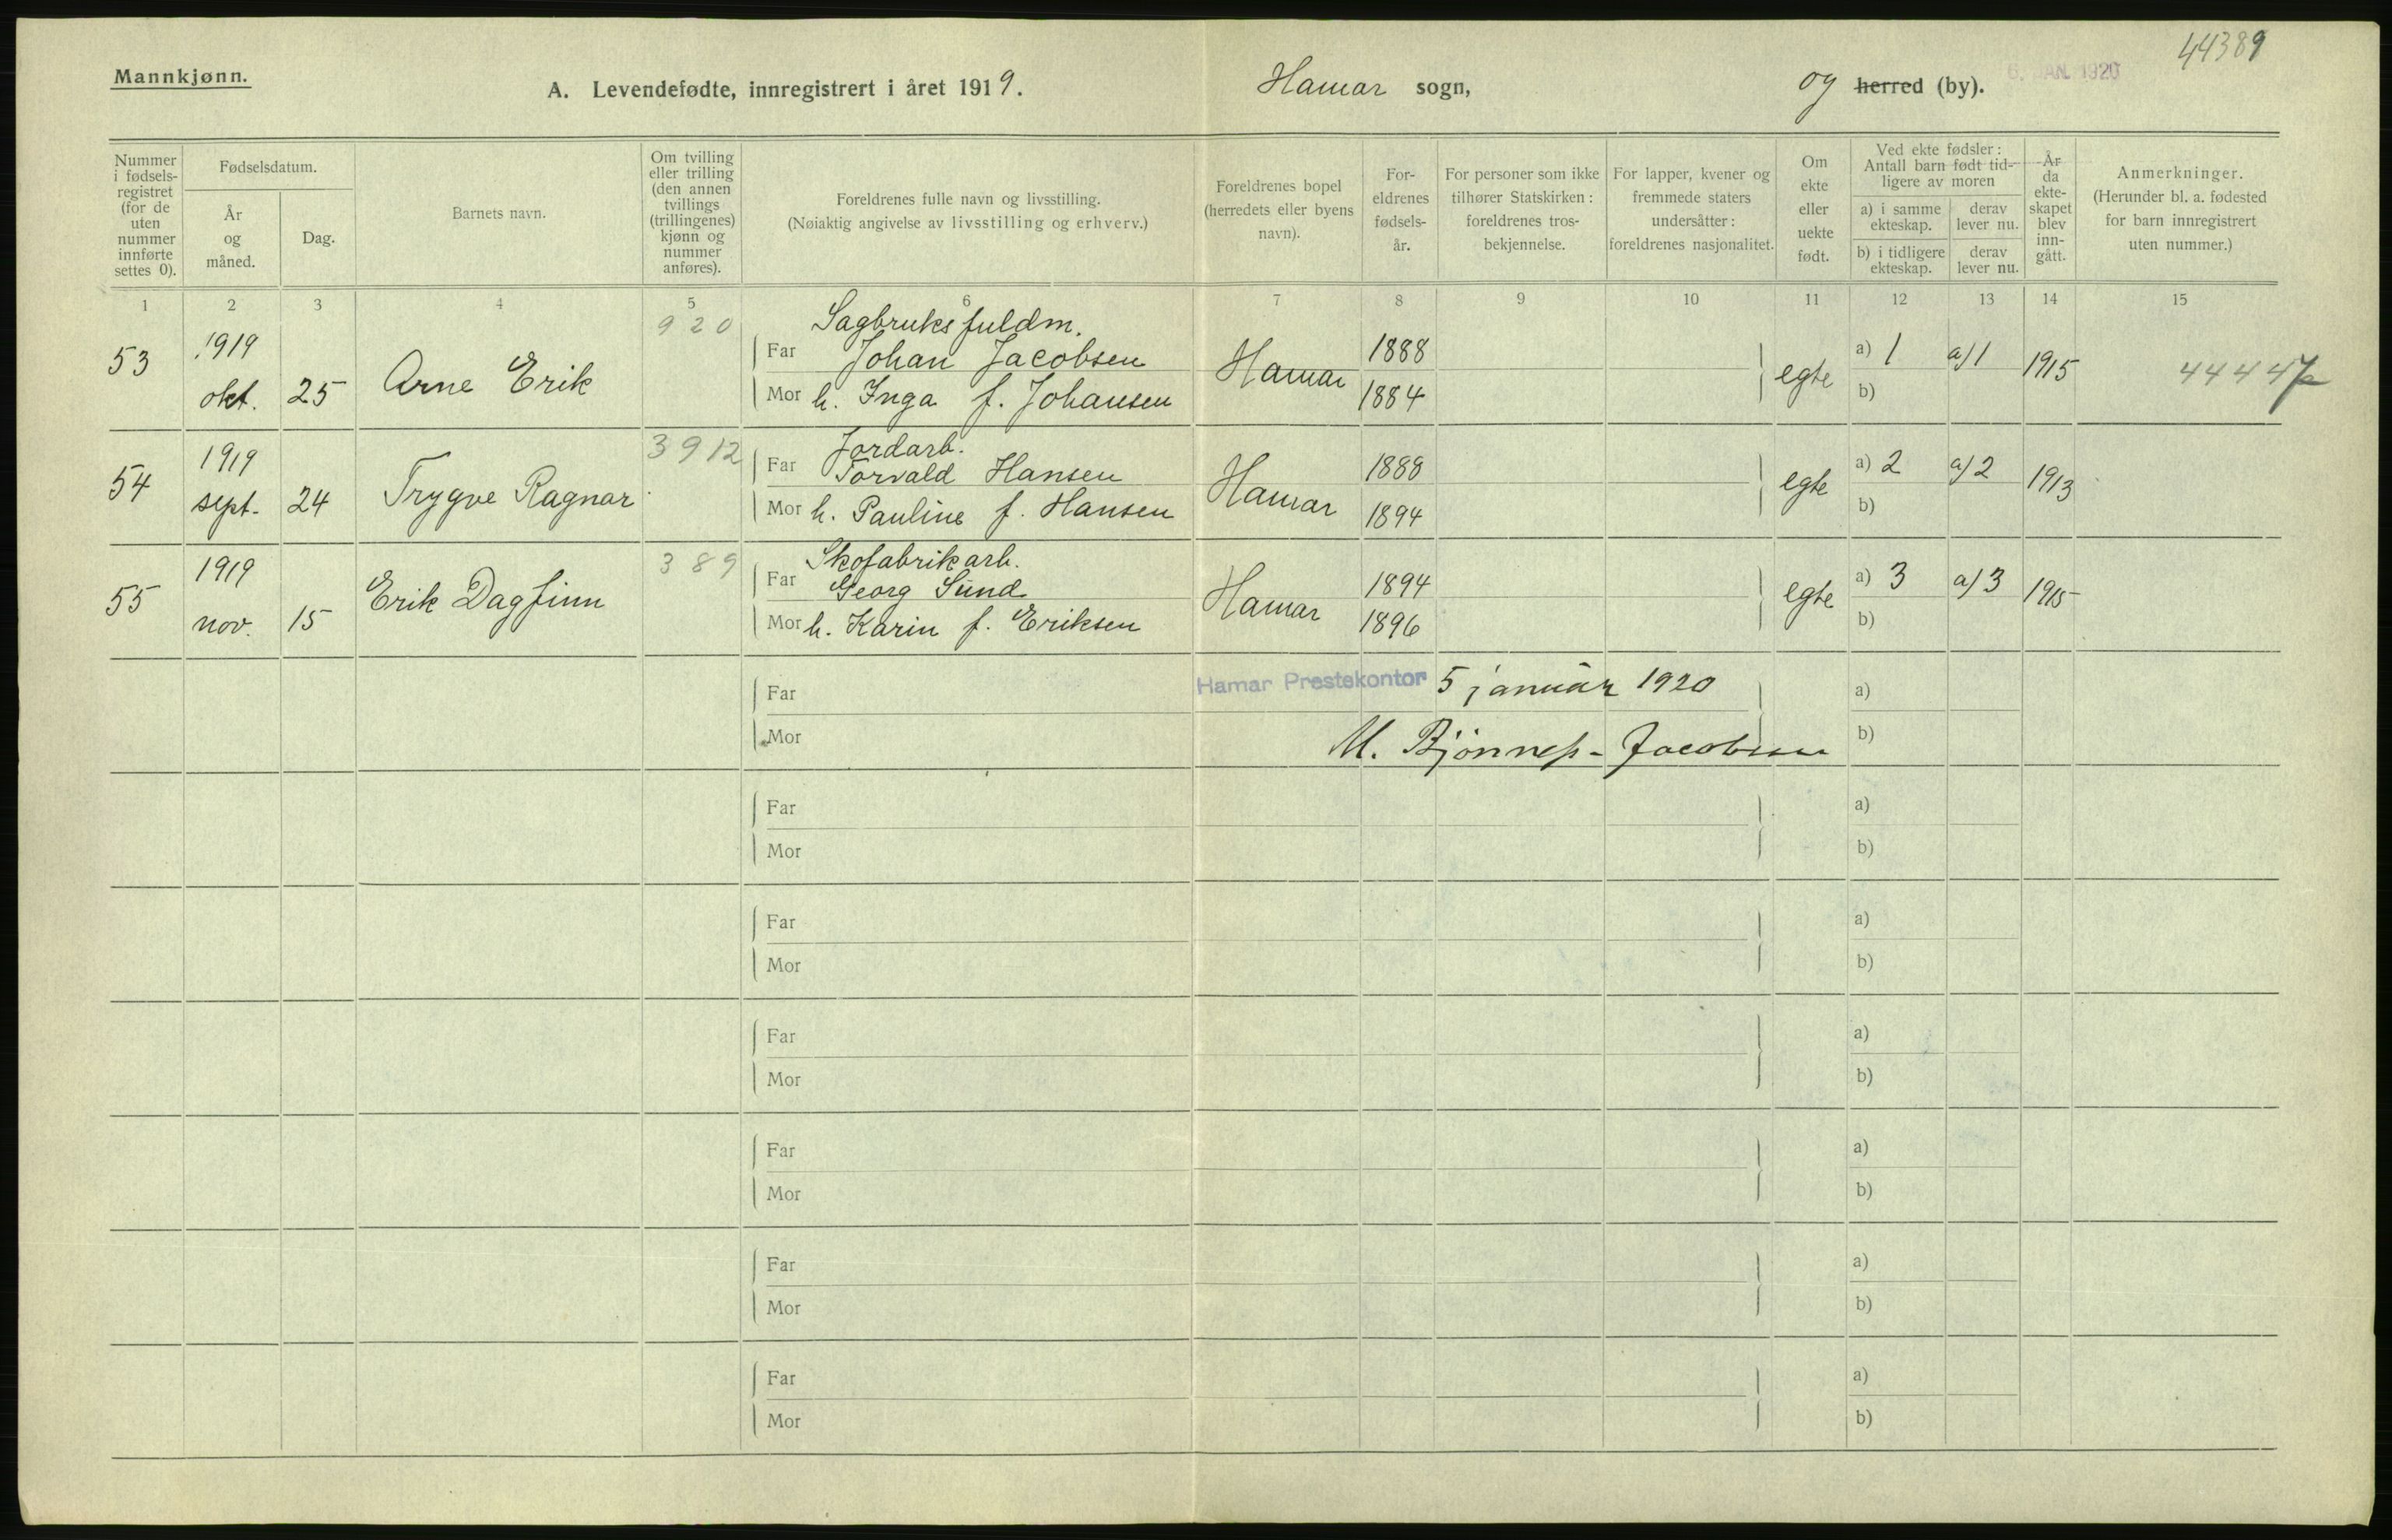 44389
Mannkjønn.
A. Levendefødte, innregistrert i året 1919.
Hamar sogn,
og herred (by).
6. JAN. 1920
Nummer i fødsels-registret (for de uten nummer innførte settes 0).
Fødselsdatum.
År og måned.
Dag.
Barnets navn.
Om tvilling eller trilling (den annen tvillings (trillingenes) kjønn og nummer anføres).
Foreldrenes fulle navn og livsstilling.
(Nøiaktig angivelse av livsstilling og erhverv.)
Foreldrenes bopel (herredets eller byens navn).
For-eldrenes fødsels-år.
For personer som ikke tilhører Statskirken: foreldrenes tros-bekjennelse.
For lapper, kvener og fremmede staters undersåtter: foreldrenes nasjonalitet.
Om ekte eller uekte født.
Ved ekte fødsler: Antall barn født tid-ligere av moren
a) i samme ekteskap.
derav lever nu.
b) i tidligere ekteskap.
derav lever nu.
År da ekte-skapet blev inn-gått.
Anmerkninger.
(Herunder bl. a. fødested for barn innregistrert uten nummer.)
1 2 3 4 5 6 7 8 9 10 11 12 13 14 15
920 Sagbruksfuldm.
53 1919 Far Johan Jacobsen Hamar 1888 egte a) 1 a) 1 1915 44447
okt. 25 Arne Erik Mor h. Inga f. Johansen 1884 b)
3912 Jordarb.
54 1919 Far Torvald Hansen Hamar 1888 egte a) 2 a) 2 1913
sept. 24 Trygve Ragnar Mor h. Pauline f. Hansen 1894 b)
389 Skofabrikarb.
55 1919 Far Georg Sund Hamar 1894 egte a) 3 a) 3 1915
nov. 15 Erik Dagfinn Mor h. Karin f. Eriksen 1896 b)
Far Hamar Prestekontor 5 januar 1920 a)
Mor M. Bjönness-Jacobsen b)
Far a)
Mor b)
Far a)
Mor b)
Far a)
Mor b)
Far a)
Mor b)
Far a)
Mor b)
Far a)
Mor b)